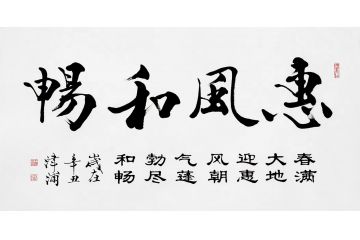 惠風和暢
春满
大地
迎惠
风朝
气蓬
勃尽
和畅
歲在
辛丑
津浦